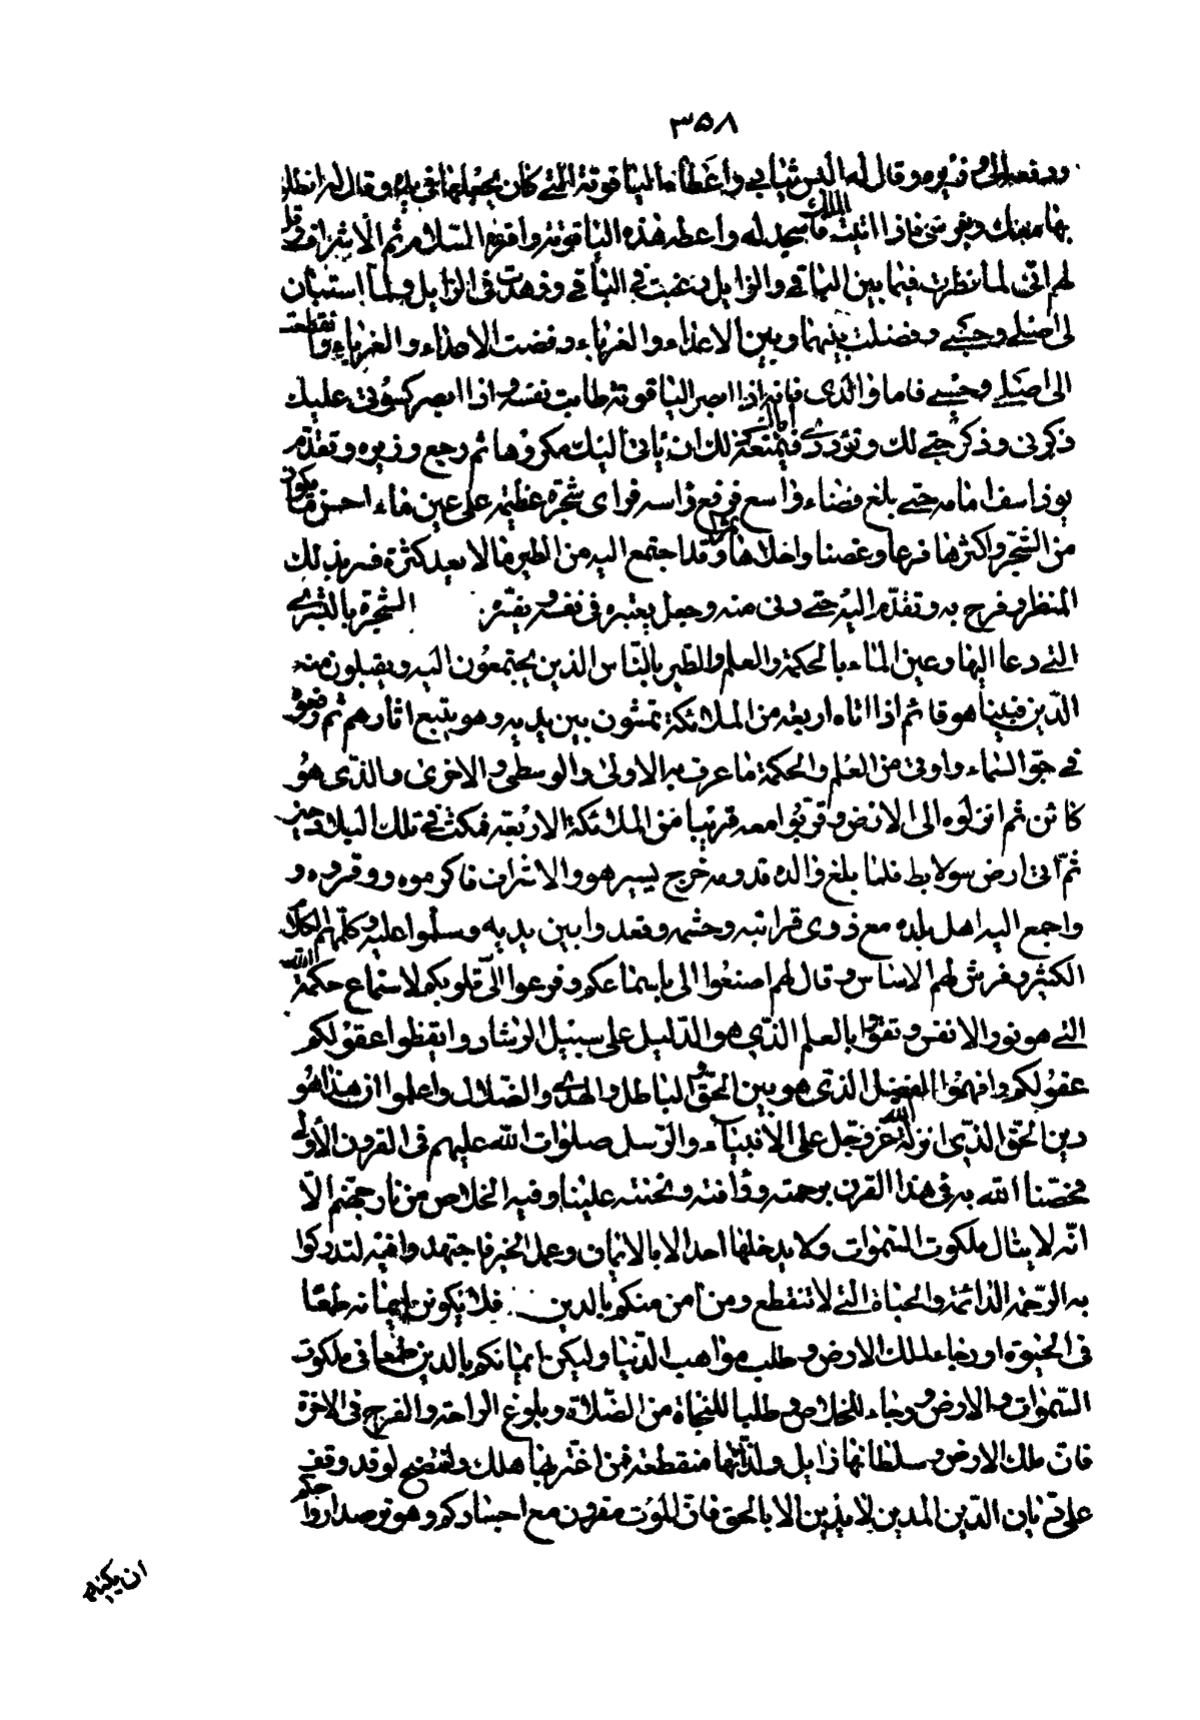 ٣٥٨
ودفعه الى وزيره وقال له البس ثيابي واعطاه الياقوتة التي كان يجعلها في راسه وقال له انطلق
بها معك وبفرسي فاذا اتيت الملك فاسجد له واعطه هذه الياقوتة واقرئه السلام ثم الاشراف وقل
لهم اني لما نظرت فيما بين الباقي والزايل رغبت في الباقي وزهدت في الزايل ولما استبان
لي اصلي وحسبي وفصلت بينهما وبين الاعداء والغرباء رفضت الاعداء والغرباء وانقطعت
الى اصلي وحسبي فاما والدي فانه اذا ابصر الياقوتة طابت نفسه واذا ابصر كسوتي عليك
ذكرني وذكر حبي لك ومودتي اياك فيمنعه ذلك ان ياتي اليك مكروها ثم رجع وزيره وتقدم
يوذاسف امامه حتى بلغ فضاء واسع فرفع راسه فراى شجرة عظيمه على عين ماء احسن ما يكون
من الشجر واكثرها فرعا وغصنا واحلاها ثمرا وقد اجتمع اليه من الطير ما لا يعد كثرة فسر بذلك
المنظر وفرح به وتقدم اليه حتى دنى منه وجعل يعتبره في نفسه ويفسره الشجرة بالبشرى
التي دعا اليها وعين الماء بالحكمة والعلم والطير بالناس الذين يجتمعون اليه ويقبلون منه
الدين فبينا هو قائم اذا اتاه اربعة من الملائكة يمشون بين يديه وهو يتبع اثارهم ثم رفعوه
في جو السماء واوتي من العلم والحكمة ما عرف به الاولى والوسطى والاخرى والذي هو
كائن ثم انزلوه الى الارض وقرنوا معه قرينا من الملائكة الاربعة فمكث في تلك البلاد حين
ثم اتى ارض سولابط فلما بلغ والده قدومه خرج يسير هو والاشراف فاكرموه ووقروه و
واجمع اليه اهل بلده مع ذوي قرابته وحشمه وقعدوا بين يديه وسلموا عليه وكلمهم الكلام
الكثير وفرش لهم الاساس وقال لهم اصغوا الي باسماعكم وفرغوا الي قلوبكم لاستماع حكمة الله
التي هو نور الانفس وتقووا بالعلم الذي هو الدليل على سبيل الرشاد وايقظوا عقولكم
عقولكم وافهموا الفصل الذي هو بين الحق والباطل والهدى والضلال واعلموا ان هذا هو
دين الحق الذي انزله الله عز وجل على الانبياء والرسل صلوات الله عليهم في القرون الاولى
فخصنا الله به في هذا القرن برحمته ورافته وتحننه علينا وفيه الخلاص من نار جهنم الا
انه لا ينال ملكوت السموات ولا يدخلها احد الا بالايمان وعمل الخير فاجتهدوا فيه لتدركوا
به الرحمة الدائمة والحياة التي لا تنقطع ومن امن منكم بالدين فلا يكونن ايمانه طمعا
في الحيوة او رجاء لملك الارض وطلب مواهب الدنيا وليكن ايمانكم بالدين طمعا في ملكوت
السموات والارض ورجاء للخلاص وطلبا للنجاة من الضلالة وبلوغ الراحة والفرج في الاخرة
فان ملك الارض وسلطانها زايل ولذاتها منقطعة فمن اغتر بها هلك وافتضح لو قد وقف
على ديان الدين المدين لا يدين الا بالحق فان الموت مقرون مع اجسادكم وهو يرصد ارواحكم
ان يكبها